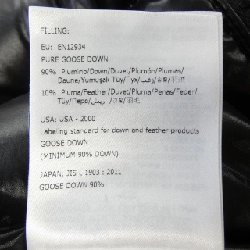 FILLING:
EU: EN12934
PURE GOOSE DOWN
90% Piumino/Down/Duvet/Plumón/Plumas/
Daune/Yumuşak Tüy/
10% Piuma/Feather/Duvet/Pluma/Penas/Feder/
Tüy/
USA: USA - 2000
labeling standard for down and feather products
GOOSE DOWN
(MINIMUM 90% DOWN)
JAPAN: JIS L 1903 : 2011
GOOSE DOWN 90%